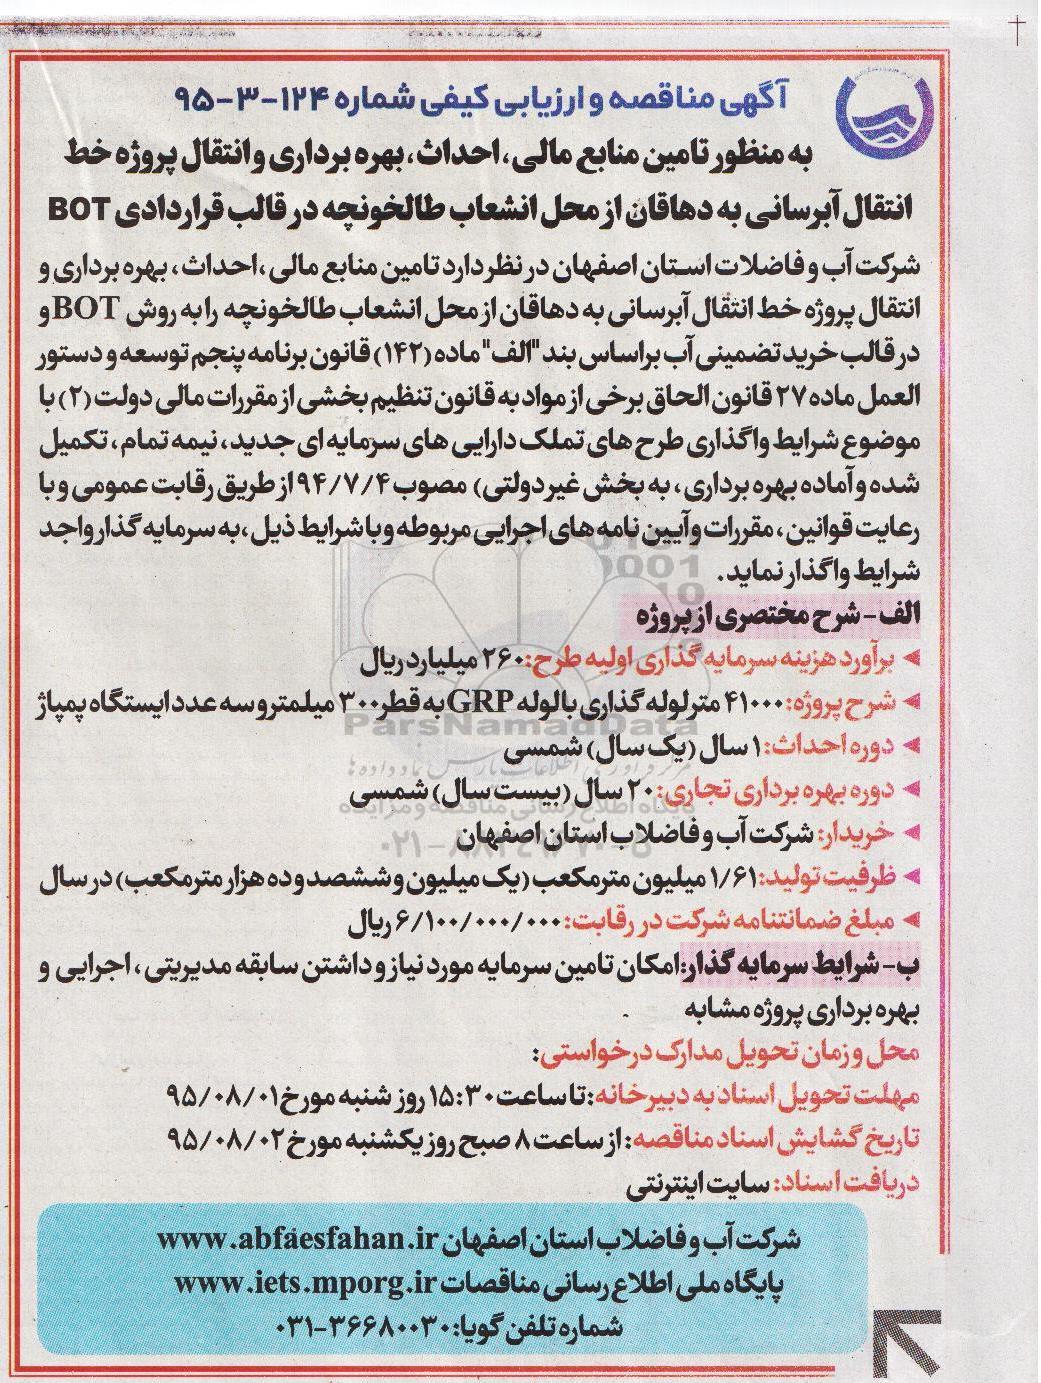 آگهی مناقصه و ارزیابی کیفی شماره ۱۲۴-۳-۹۵
به منظور تامین منابع مالی، احداث، بهره برداری و انتقال پروژه خط
انتقال آبرسانی به دهاقان از محل انشعاب طالخونچه در قالب قراردادی BOT
شرکت آب و فاضلات استان اصفهان در نظر دارد تامین منابع مالی، احداث، بهره برداری و
انتقال پروژه خط انتقال آبرسانی به دهاقان از محل انشعاب طالخونچه را به روش BOT و
در قالب خرید تضمینی آب براساس بند "الف" ماده (۱۴۲) قانون برنامه پنجم توسعه و دستور
العمل ماده ۲۷ قانون الحاق برخی از مواد به قانون تنظیم بخشی از مقررات مالی دولت (۲) با
موضوع شرایط واگذاری طرح های تملک دارایی های سرمایه ای جدید، نیمه تمام، تکمیل
شده و آماده بهره برداری، به بخش غیر دولتی) مصوب ۹۴/۷/۴ از طریق رقابت عمومی و با
رعایت قوانین، مقررات و آیین نامه های اجرایی مربوطه و با شرایط ذیل، به سرمایه گذار واجد
شرایط واگذار نماید.
الف- شرح مختصری از پروژه
برآورد هزینه سرمایه گذاری اولیه طرح: ۲۶۰ میلیارد ریال
شرح پروژه: ۴۱۰۰۰ متر لوله گذاری با لوله GRP به قطر ۳۰۰ میلمتر و سه عدد ایستگاه پمپاژ
ParsNamadData
دوره احداث: ۱ سال (یک سال) شمسی
مرکز فرآوری اطلاعات پارس نماد داده ها
دوره بهره برداری تجاری: ۲۰ سال (بیست سال) شمسی
پایگاه اطلاع رسانی مناقصه و مزایده
خریدار: شرکت آب و فاضلاب استان اصفهان
ظرفیت تولید: ۱/۶۱ میلیون مترمکعب (یک میلیون و ششصد و ده هزار مترمکعب) در سال
مبلغ ضمانتنامه شرکت در رقابت: ۶/۱۰۰/۰۰۰/۰۰۰ ریال
ب- شرایط سرمایه گذار: امکان تامین سرمایه مورد نیاز و داشتن سابقه مدیریتی، اجرایی و
بهره برداری پروژه مشابه
محل و زمان تحویل مدارک درخواستی:
مهلت تحویل اسناد به دبیرخانه: تا ساعت ۱۵:۳۰ روز شنبه مورخ ۹۵/۰۸/۰۱
تاریخ گشایش اسناد مناقصه: از ساعت ۸ صبح روز یکشنبه مورخ ۹۵/۰۸/۰۲
دریافت اسناد: سایت اینترنتی
شرکت آب و فاضلاب استان اصفهان www.abfaesfahan.ir
پایگاه ملی اطلاع رسانی مناقصات www.iets.mporg.ir
شماره تلفن گویا: ۰۳۱-۳۶۶۸۰۰۳۰